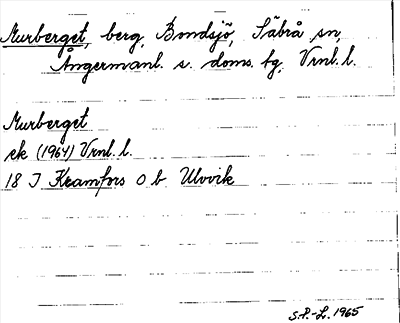 Murberget, berg, Bondsjö, Säbrå sn,
Ångermanl. s. doms. tg, Vrnl. l.
Murberget
ek (1964) Vrnl. l.
18 I Kramfors O b Ulvvik
S.P.-L. 1965